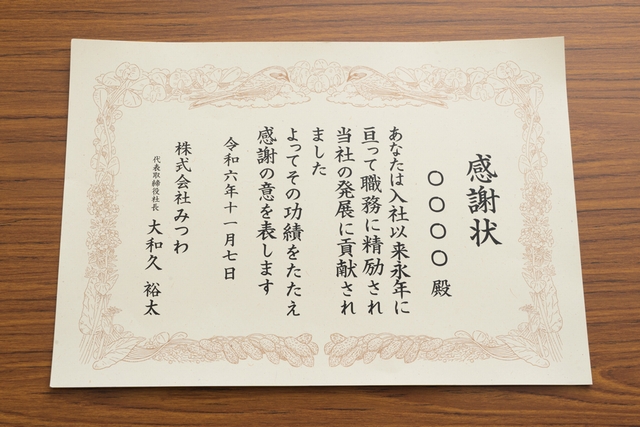 感謝状
〇〇〇〇 殿
あなたは入社以来永年に
亘って職務に精励され
当社の発展に貢献され
ました
よってその功績をたたえ
感謝の意を表します
令和六年十一月七日
株式会社みつわ
代表取締役社長 大和久 裕太